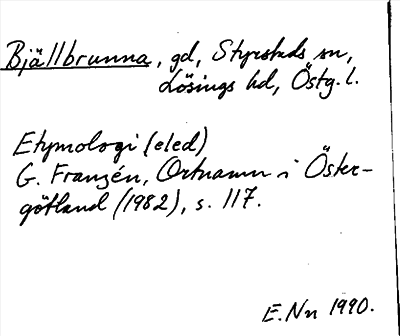 Bjällbrunna, gd, Styrstads sn,
Lösings hd, Östg. l.
Etymologi (eled)
G. Franzén, Ortnamn i Öster-
götland (1982), s. 117.
E. Nn 1990.